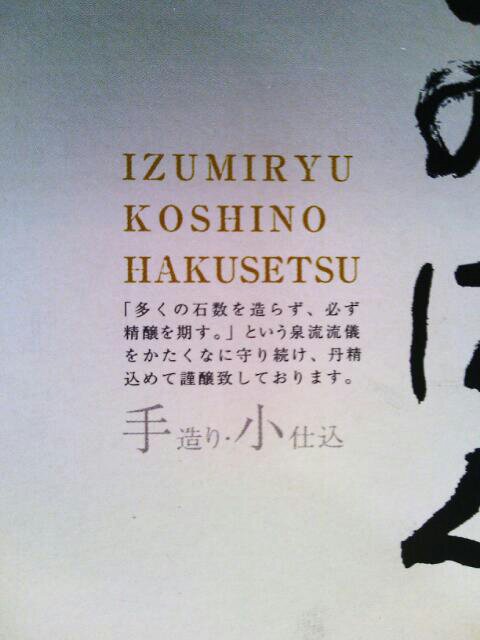 IZUMIRYU
KOSHINO
HAKUSETSU
「多くの石数を造らず、必ず
精醸を期す。」という泉流流儀
をかたくなに守り続け、丹精
込めて謹醸致しております。
手造り・小仕込
のはく